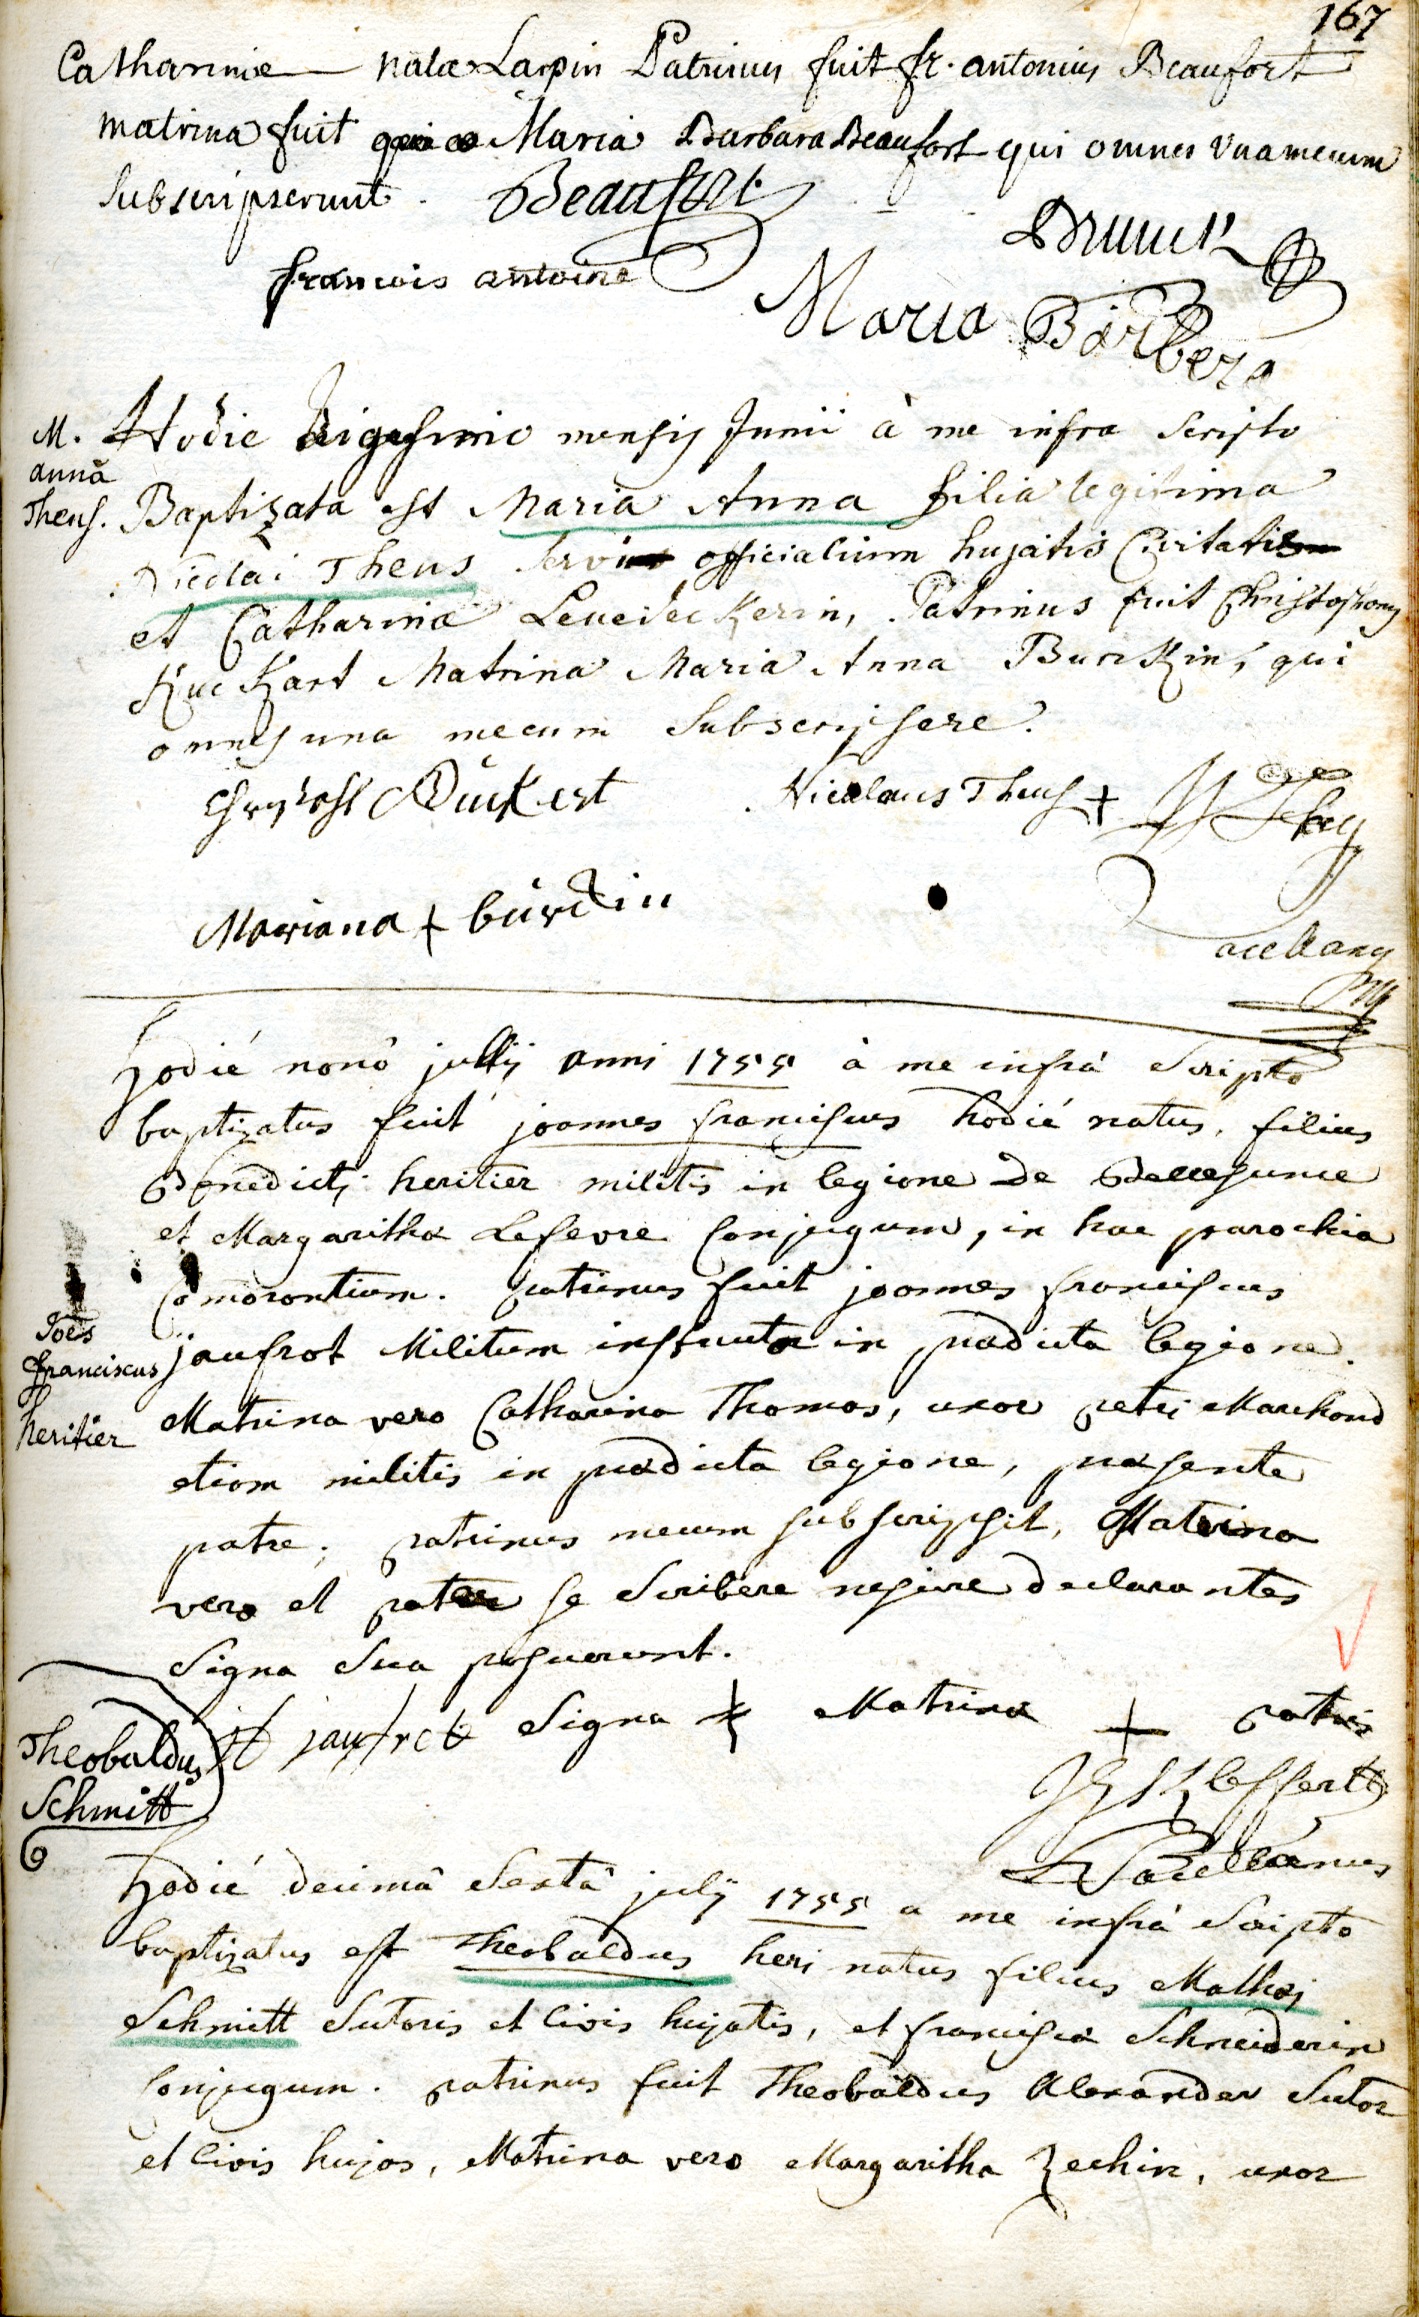 167
Catharinæ natæ Lapin Patrinus fuit fr. antonius Beaufort
matrina fuit Maria Barbara Beaufort qui omnes una mecum
subscripserunt. Beaufort
Brunck
francois antoine
Maria Barbera
M. anna Theus.
Hodie vigesimo mensis Junii à me infra scripto
Baptizata est Maria Anna filia legitima
Nicolai Theus servi officialium hujatis Civitatis
et Catharina Leuedeckerin, Patrinus fuit Christophorus
Kuckart Matrina Maria Anna Burckin, qui
omnes una mecum subscripsere.
Nicolaus Theus +
Mariana + bürckin
sacellanus
Hodié nonô julij anni 1755 à me infrá scripto
baptizatus fuit joannes franciscus hodié natus, filius
Benedicti heritier militis in legione de Bellesunce
et Margarithæ Lefevre conjugum, in hac parochia
comorantium. patrinus fuit joannes franciscus
Joês franciscus heritier
jaufrot Militum in prædicta legione.
Matrina vero Catharina Thomas, uxor petri Marchand
etiam militis in prædicta legione, præsente
patre; patrinus mecum subscripsit, Matrina
vero et pater se scribere nescire declarantes
signa sua posuerunt.
jaufret signa + Matrinæ + patris
Sacellanus
Theobaldus Schmitt
Hodié decimâ sextâ julij 1755 a me infrá scripto
baptizatus est Theobaldus heri natus filius Mathæi
Schmitt sutoris et civis hujatis, et franciscæ Schneiderin
conjugum. patrinus fuit Theobaldus Alexander sutor
et civis hujas, Matrina vero Margaritha Zechin, uxor